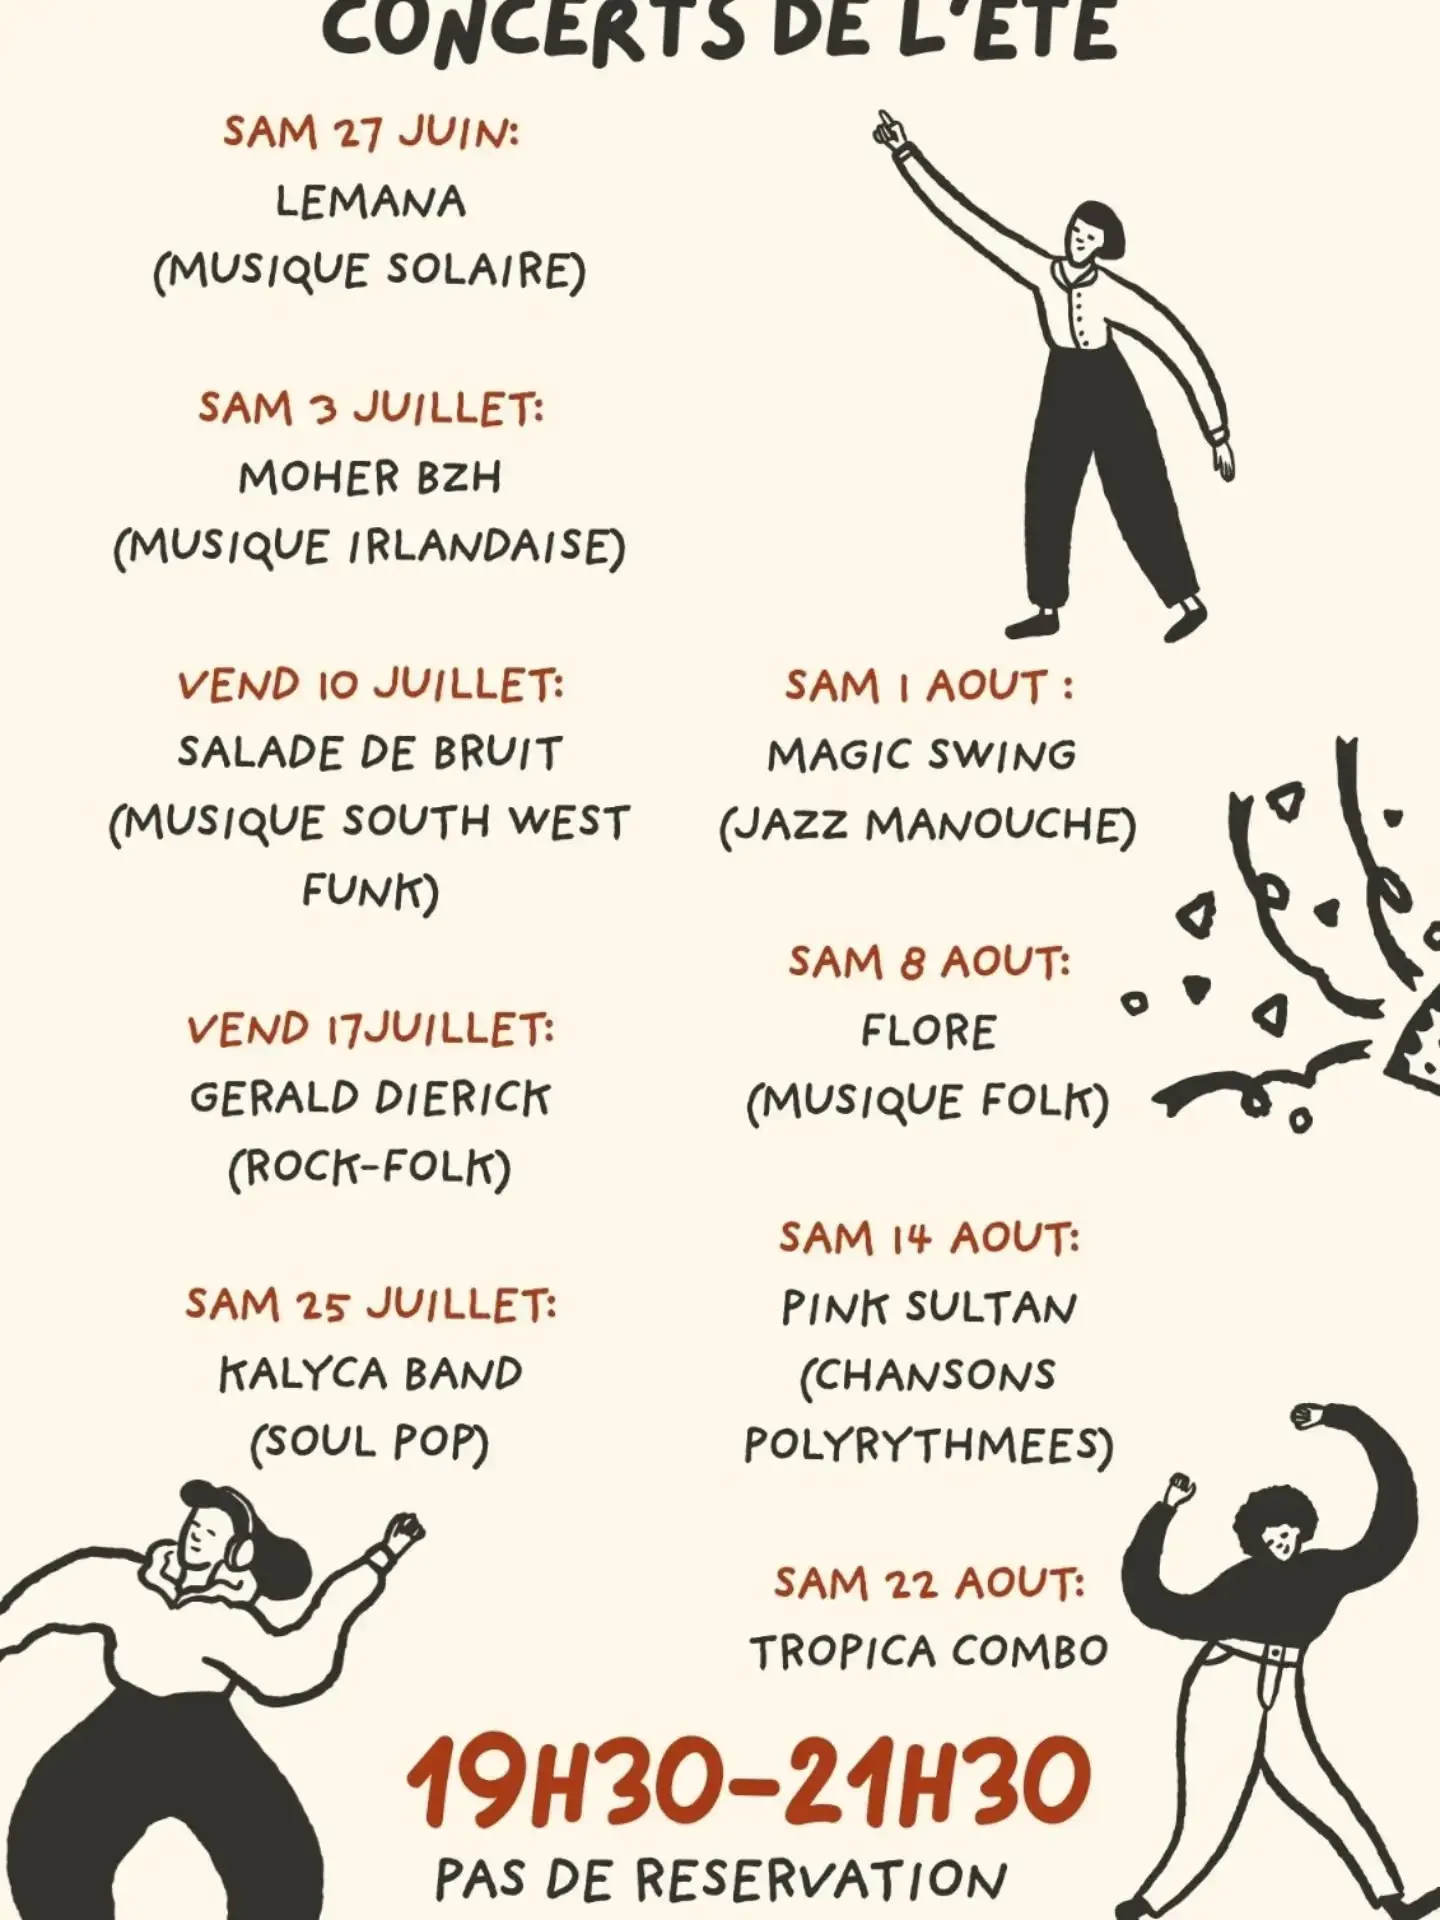 CONCERTS DE L'ÉTÉ
SAM 27 JUIN:
LEMANA
(MUSIQUE SOLAIRE)
SAM 3 JUILLET:
MOHER BZH
(MUSIQUE IRLANDAISE)
VEND 10 JUILLET:
SALADE DE BRUIT
(MUSIQUE SOUTH WEST
FUNK)
VEND 17JUILLET:
GERALD DIERICK
(ROCK-FOLK)
SAM 25 JUILLET:
KALYCA BAND
(SOUL POP)
SAM 1 AOUT :
MAGIC SWING
(JAZZ MANOUCHE)
SAM 8 AOUT:
FLORE
(MUSIQUE FOLK)
SAM 14 AOUT:
PINK SULTAN
(CHANSONS
POLYRYTHMEES)
SAM 22 AOUT:
TROPICA COMBO
19H30-21H30
PAS DE RESERVATION